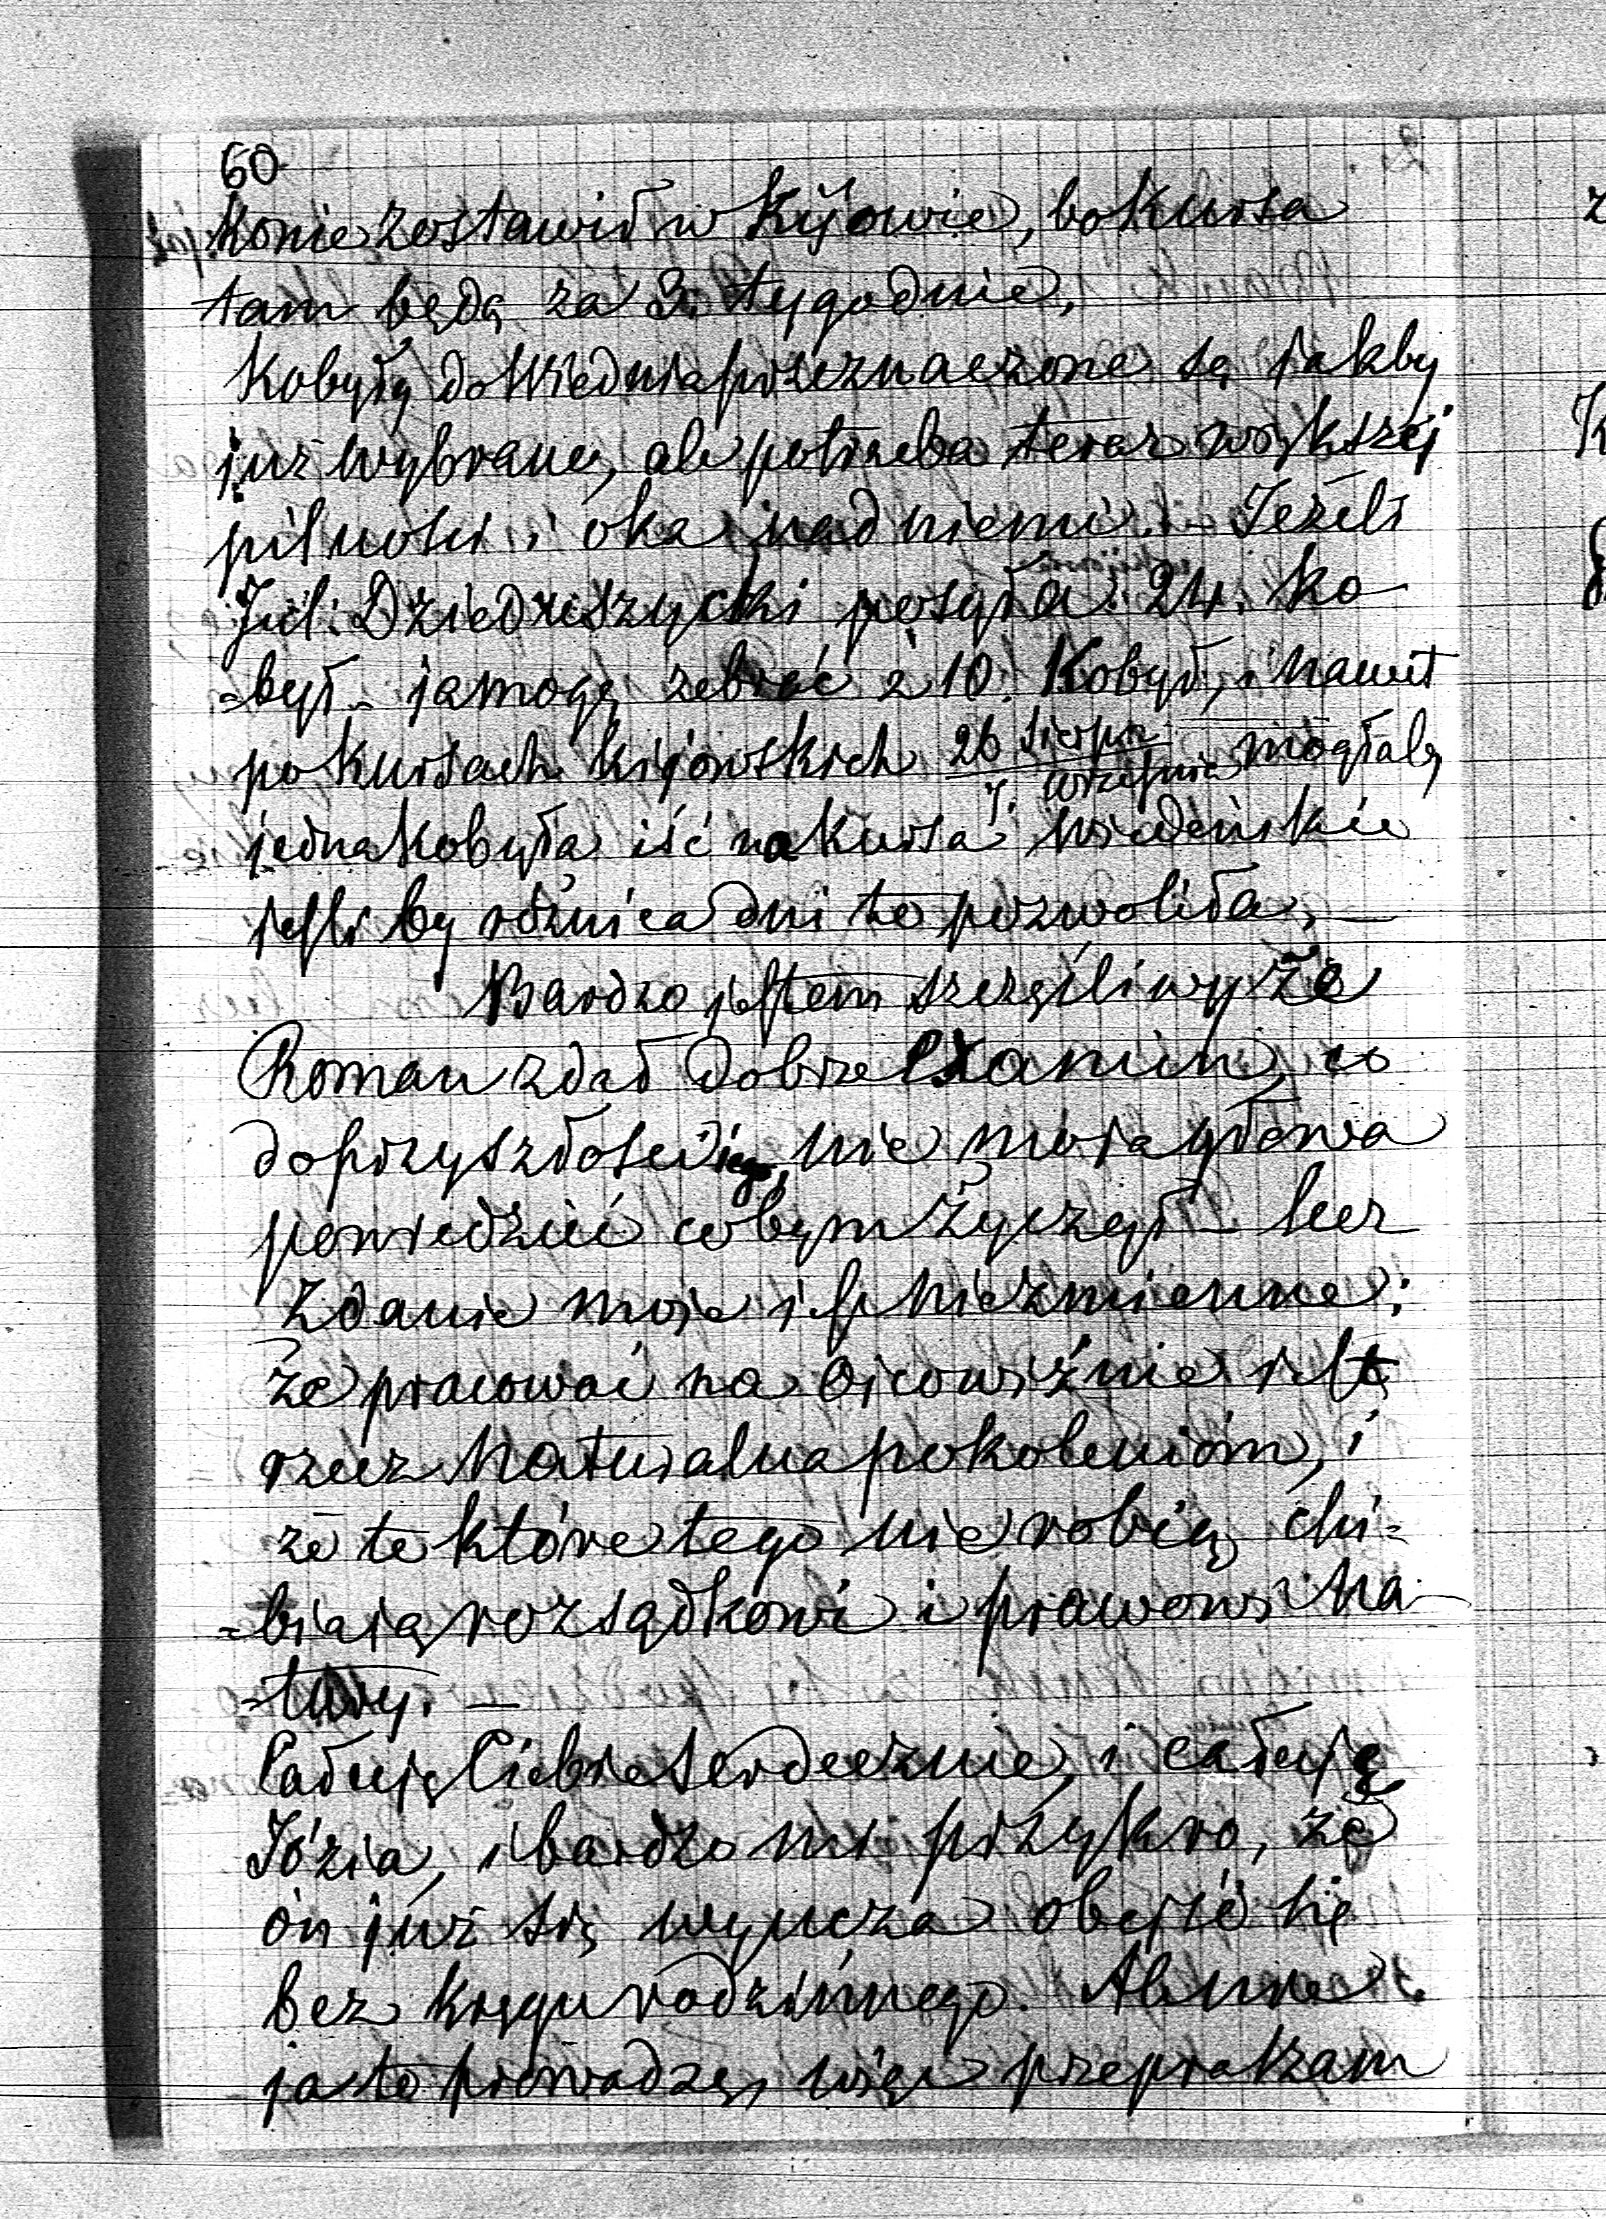 60
konie zostawił w Kijowie, bo kursa
tam będą za 3. tygodnie,
Kobyły do Wiednia przeznaczone są jakby
już wybrane, ale potrzeba teraz większej
pilności i oka nad niemi. – Jeżeli
Jul: Dzieduszycki posyła 24. ko-
=był – ja mogę zebrać z 10. Kobył, i nawet
po kursach kijowskich 26 sierpn / 7. września mogłaby
jedna kobyła iść na kursa wiedeńskie
jeśli by różnica dni to pozwoliła, –
Bardzo jestem szczęśliwy że
Roman zdał dobrze examin, co
do przyszłości jego, nie moja głowa
powiedzieć co bym życzył – lecz
zdanie moje jest niezmienne:
że pracować na ojcowiźnie jest
rzecz naturalna pokoleniom, i
że te które tego nie robią, chi=
=biają rozsądkowi i prawowi na-
=tury. –
Całuję Ciebie serdecznie, i całuję
Józia, i bardzo mi przykro, że
on już się wyucza obejść się
bez kręgu rodzinnego. Ale nie
ja to prowadzę, więc przepraszam